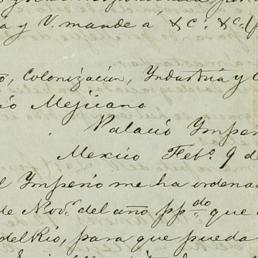 a y V. mande á &c: &c:
o, Colonización, Yndustria y C
io Mejicano
Palacio Ymper
Mexico Feb.o 9 de
l Ymperio me ha ordena
de Nov.e del año pp.do que
del Rio, para que pueda